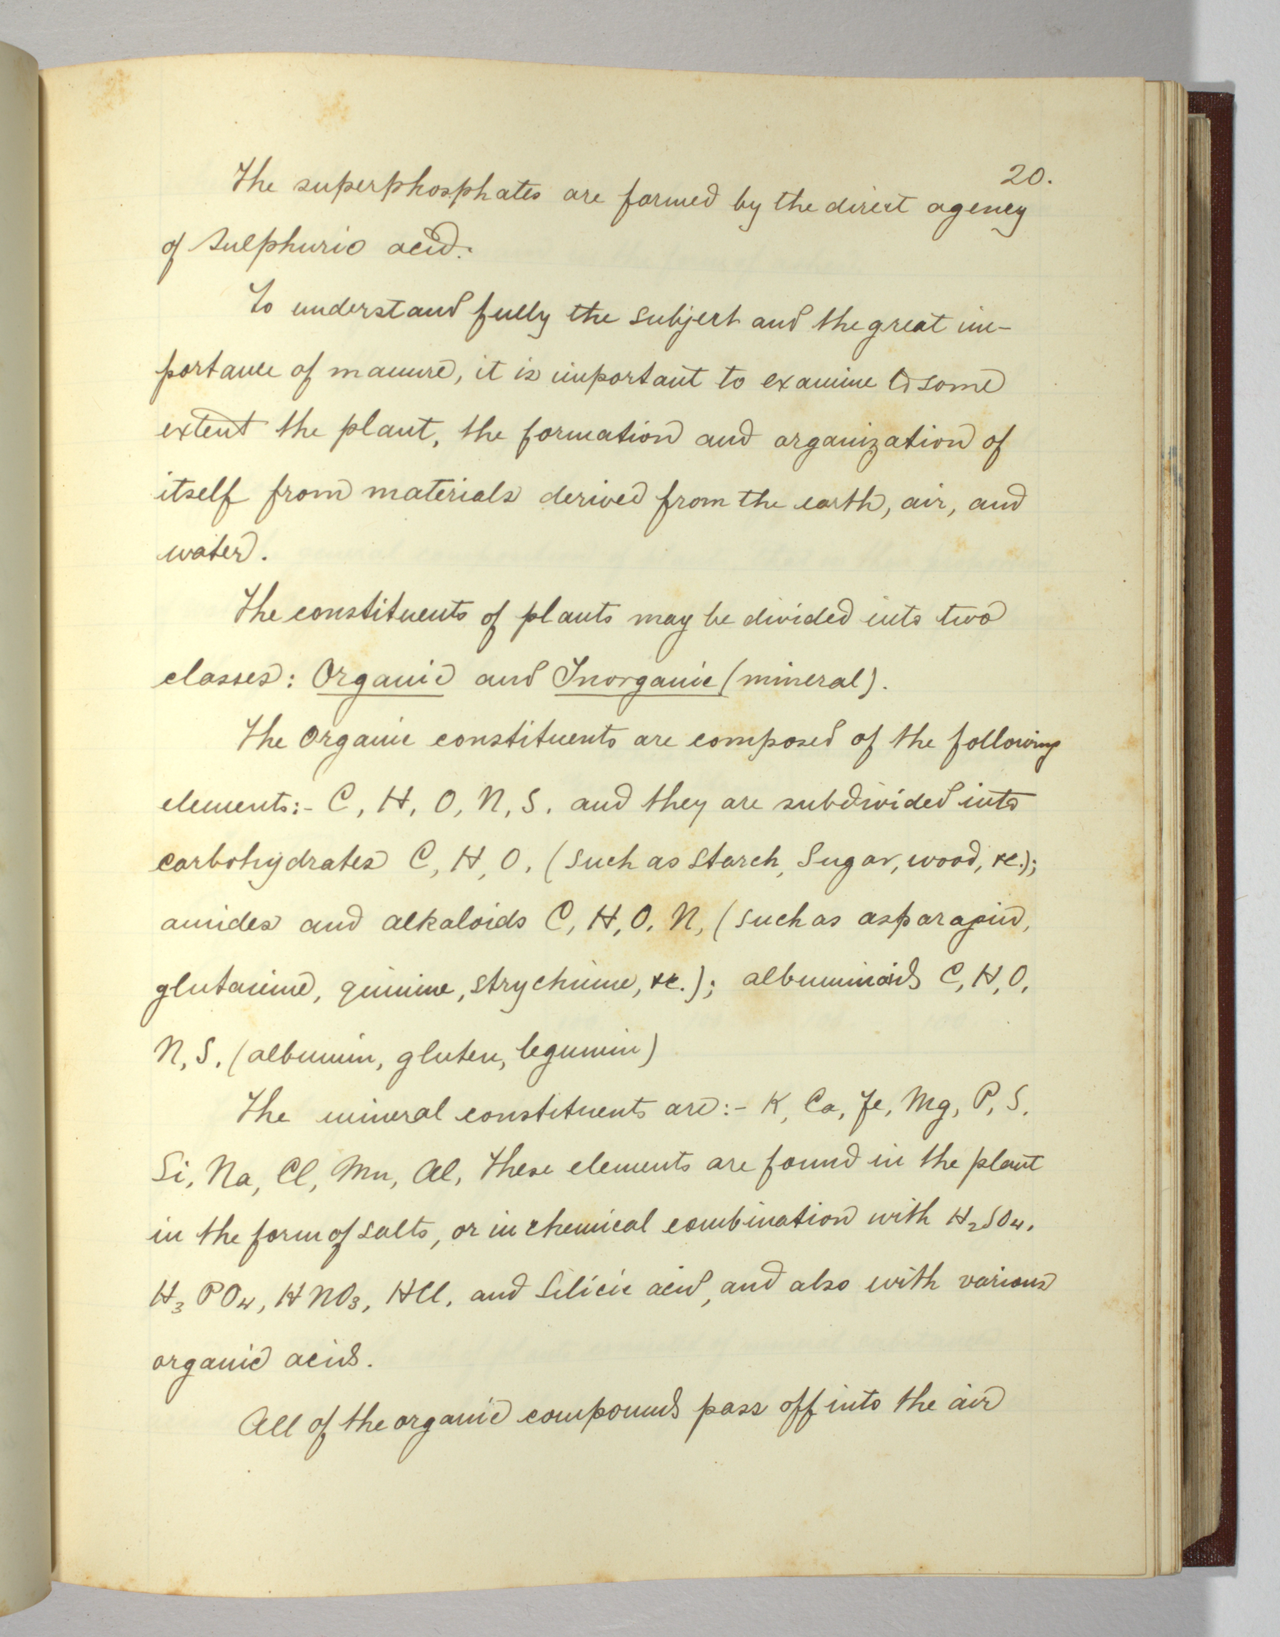 20.
The superphosphates are formed by the direct agency
of Sulphuric acid.
To understand fully the subject and the great im-
portance of manure, it is important to examine to some
extent the plant, the formation and organization of
itself from materials derived from the earth, air, and
water.
The constituents of plants may be divided into two
classes: Organic and Inorganic (mineral).
The Organic constituents are composed of the following
elements:- C, H, O, N, S. and they are subdivided into
carbohydrates C, H, O, (such as starch, Sugar, wood, &c.);
amides and alkaloids C, H, O, N, (such as asparagin,
glutamine, quinine, strychnine, &c.); albuminoids C, H, O,
N, S. (albumin, gluten, legumin)
The mineral constituents are:- K, Ca, Fe, Mg, P, S,
Si, Na, Cl, Mn, Al, These elements are found in the plant
in the form of salts, or in chemical combination with H₂SO₄,
H₃PO₄, HNO₃, HCl, and Silicic acid, and also with various
organic acids.
All of the organic compounds pass off into the air